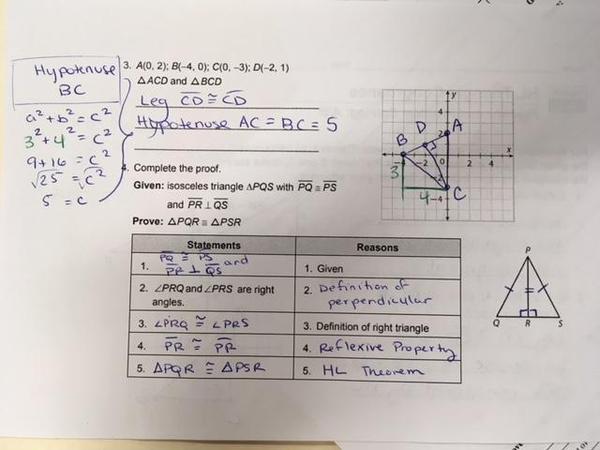 Hypotenuse
BC
a² + b² = c²
3² + 4² = c²
9 + 16 = c²
√25 = √c²
5 = c
3. A(0, 2); B(–4, 0); C(0, –3); D(–2, 1)
△ACD and △BCD
Leg CD ≅ CD
Hypotenuse AC = BC = 5
y
4
2
A
D
B
x
-4
-2
0
2
4
3
-2
C
4
-4
4. Complete the proof.
Given: isosceles triangle △PQS with PQ ≅ PS
and PR ⊥ QS
Prove: △PQR ≅ △PSR
Statements
Reasons
1. PQ ≅ PS and
PR ⊥ QS
1. Given
2. ∠PRQ and ∠PRS are right
angles.
2. Definition of
perpendicular
3. ∠PRQ ≅ ∠PRS
3. Definition of right triangle
4. PR ≅ PR
4. Reflexive Property
5. △PQR ≅ △PSR
5. HL Theorem
P
Q
R
S